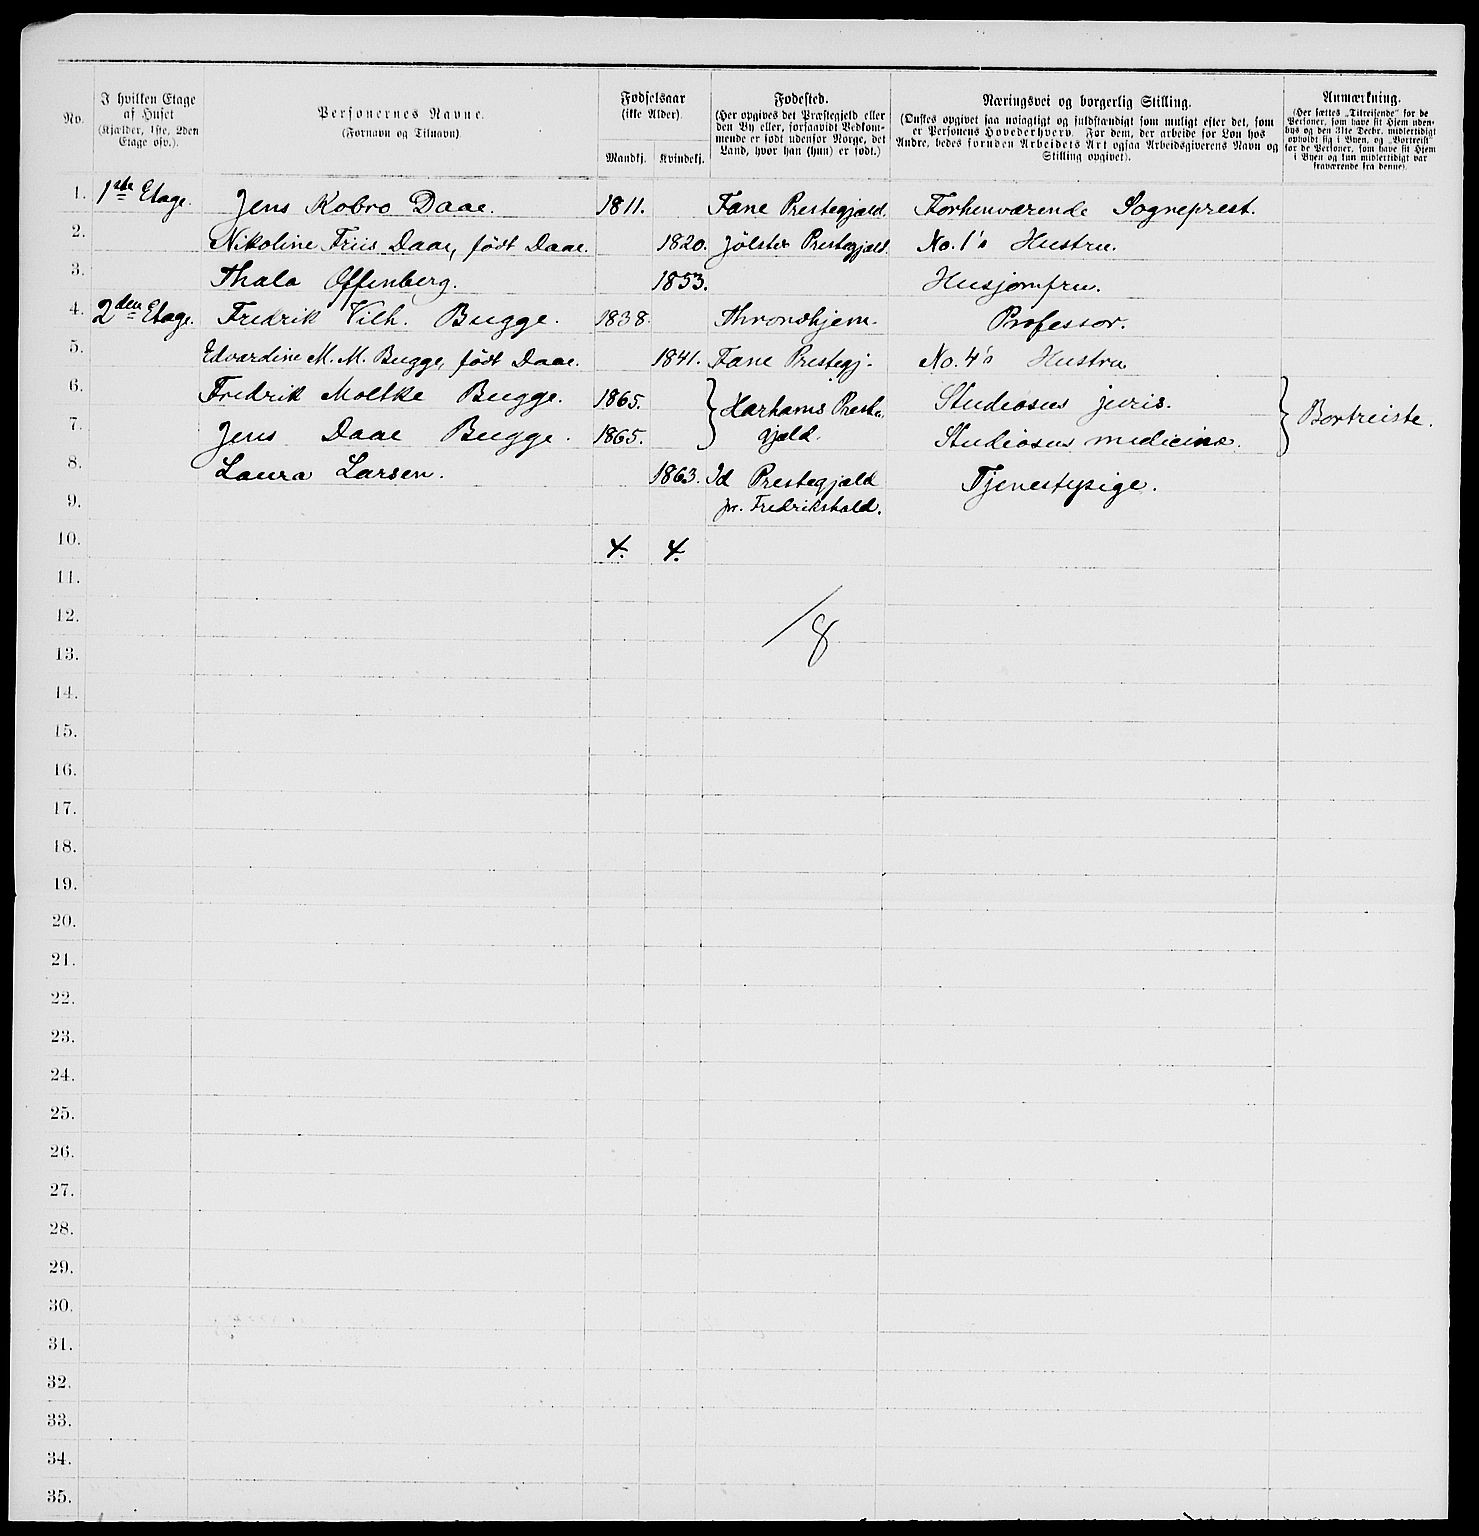 No.
I hvilken Etage
af Huset
(Kjælder, 1ste, 2den
Etage osv.).
Personernes Navne.
(Fornavn og Tilnavn)
Fødselsaar
(ikke Alder).
Mandkj. Kvindekj.
Fødested.
(Her opgives det Præstegjeld eller
den By eller, forsaavidt Vedkom-
mende er født udenfor Norge, det
Land, hvor han (hun) er født.)
Næringsvei og borgerlig Stilling.
(Ønskes opgivet saa nøiagtigt og fuldstændigt som muligt efter det, som
er Personens Hovederhverv. For dem, der arbeide for Løn hos
Andre, bedes foruden Arbeidets Art ogsaa Arbeidsgiverens Navn og
Stilling opgivet).
Anmærkning.
(Her sættes „Tilreisende" for de
Personer, som have sit Hjem uden-
bys og den 31te Decbr. midlertidigt
opholdt sig i Byen, og „Bortreist"
for de Personer, som have sit Hjem
i Byen og kun midlertidigt var
fraværende fra denne).
1. 1ste Etage. Jens Kobro Daae. 1811. Fane Prestegjæld. Forhenværende Sogneprest.
2. Nikoline Friis Daae, født Daae. 1820. Jølster Prestegjæld. No. 1's Hustru.
3. Thala Offenberg. 1853. Husjomfru.
4. 2den Etage. Fredrik Vilh. Bugge. 1838. Throndhjem. Professor.
5. Edvardine M. M. Bugge, født Daae. 1841. Fane Prestegj. No. 4's Hustru
6. Fredrik Moltke Bugge. 1865. } Harhams Preste- Studiosus juris. } Bortreiste.
7. Jens Daae Bugge. 1865. gjæld. Studiosus medicinæ.
8. Laura Larsen. 1863. Id Prestegjæld Tjenestepige.
9. pr. Fredrikshald.
10. 4. 4.
11.
12. / 8
13.
14.
15.
16.
17.
18.
19.
20.
21.
22.
23.
24.
25.
26.
27.
28.
29.
30.
31.
32.
33.
34.
35.